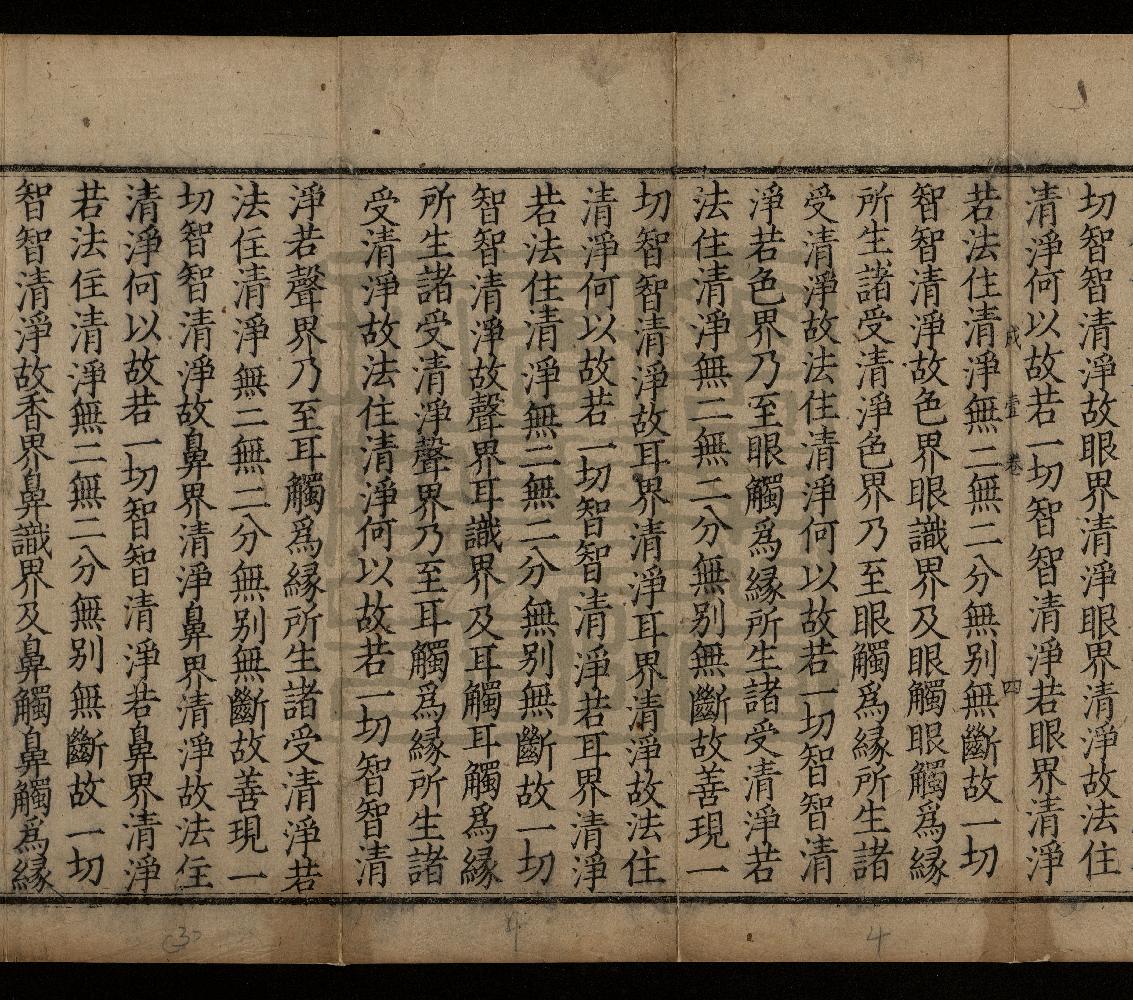 切智智清淨故眼界清淨眼界清淨故法住
清淨何以故若一切智智清淨若眼界清淨
成 壹 卷 四
若法住清淨無二無二分無別無斷故一切
智智清淨故色界眼識界及眼觸眼觸爲緣
所生諸受清淨色界乃至眼觸爲緣所生諸
受清淨故法住清淨何以故若一切智智清
淨若色界乃至眼觸爲緣所生諸受清淨若
法住清淨無二無二分無別無斷故善現一
切智智清淨故耳界清淨耳界清淨故法住
清淨何以故若一切智智清淨若耳界清淨
若法住清淨無二無二分無別無斷故一切
智智清淨故聲界耳識界及耳觸耳觸爲緣
所生諸受清淨聲界乃至耳觸爲緣所生諸
受清淨故法住清淨何以故若一切智智清
淨若聲界乃至耳觸爲緣所生諸受清淨若
法住清淨無二無二分無別無斷故善現一
切智智清淨故鼻界清淨鼻界清淨故法住
清淨何以故若一切智智清淨若鼻界清淨
若法住清淨無二無二分無別無斷故一切
智智清淨故香界鼻識界及鼻觸鼻觸爲緣
4
4
3